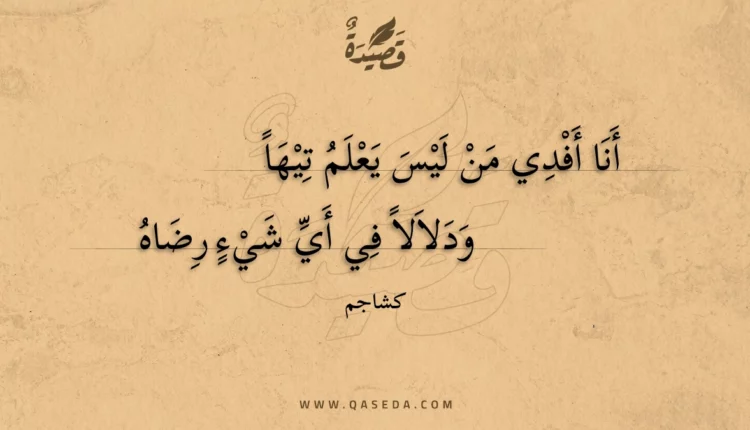 قَصِيْدَةٌ
أَنَا أَفْدِي مَنْ لَيْسَ يَعْلَمُ تِيْهَاً
وَدَلاَلاً فِي أَيِّ شَيْءٍ رِضَاهُ
كشاجم
WWW.QASEDA.COM